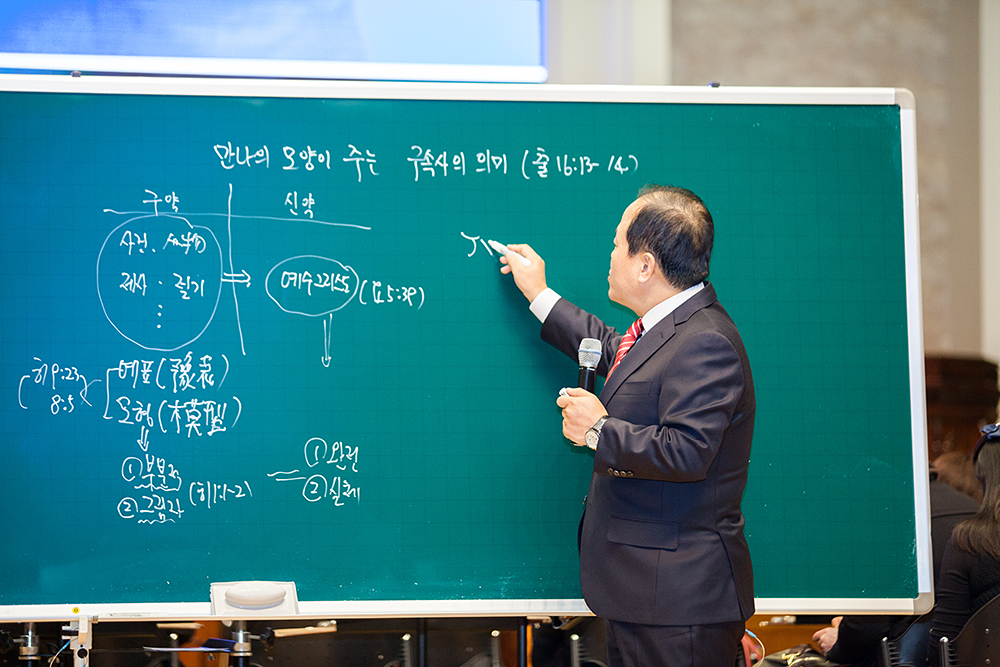 만나의 모양이 주는 구속사의 의미 (출 16:13-14)
구약 신약
사건
제사 · 절기
⋮
⇒
예수그리스도 (요 5:39)
(히 9:23
8:5)
예표 (豫表)
모형 (模型)
① 부분적
② 그림자
(히 1:1-2)
① 완전
② 실체